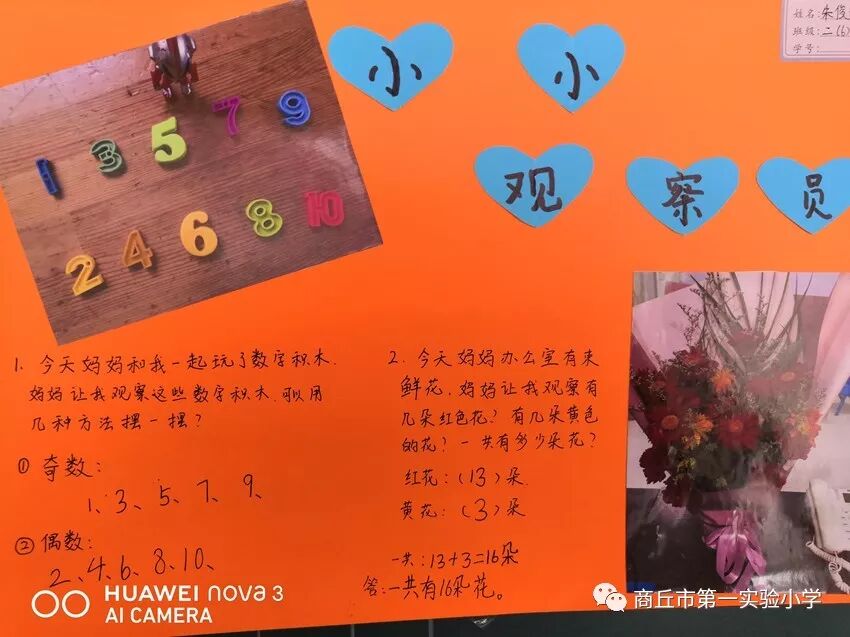 小小
观察员
姓名:朱俊
班级:二(6)
学号:
1 3 5 7 9
2 4 6 8 10
1. 今天妈妈和我一起玩了数字积木.
妈妈让我观察这些数字积木.可以用
几种方法摆一摆？
① 奇数：
1、3、5、7、9、
② 偶数：
2、4、6、8、10、
2. 今天妈妈办公室有束
鲜花,妈妈让我观察有
几朵红色花？有几朵黄色
的花？一共有多少朵花？
红花：（13）朵.
黄花：（3）朵
一共：13+3=16朵
答：一共有16朵花。
HUAWEI nova 3
AI CAMERA
商丘市第一实验小学